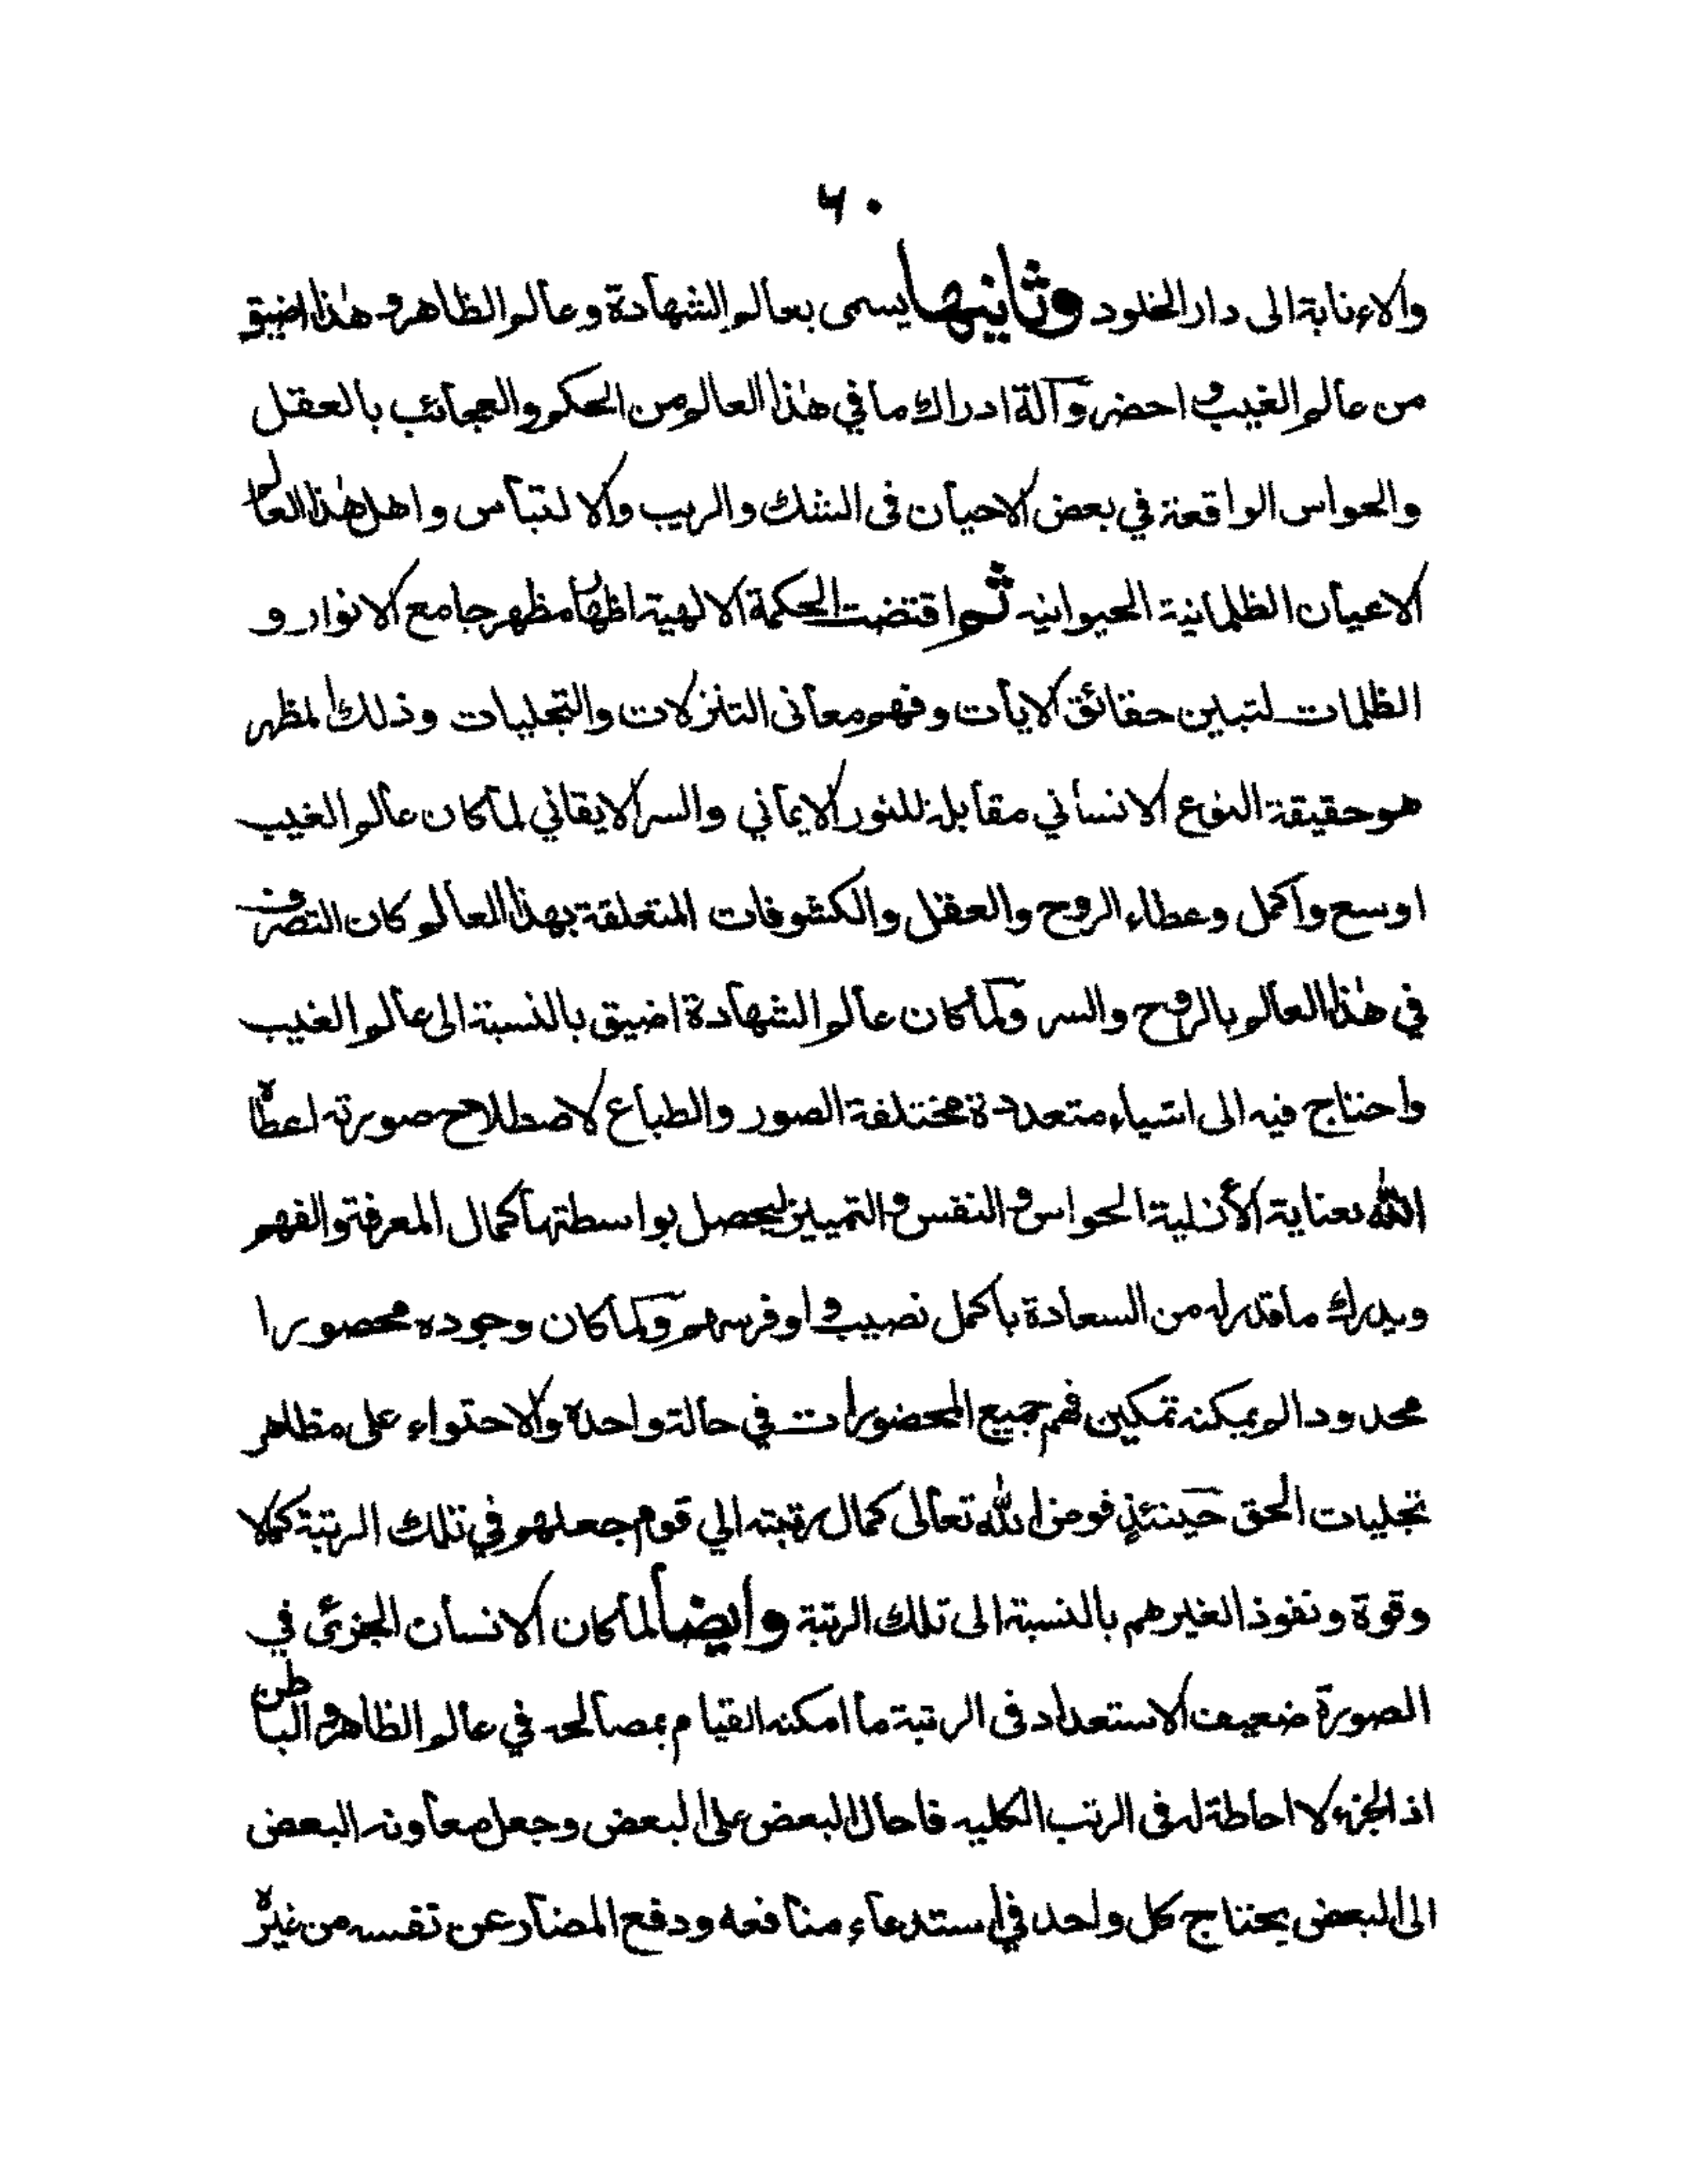 ٦٠
والاعنابة الى دار الخلود وثانيها يسمى بعالم الشهادة وعالم الظاهر وهذا اضيق
من عالم الغيب واحضر وآلة ادراك ما في هذا العالم من الحكم والعجائب بالعقل
والحواس الواقعة في بعض الاحيان فى الشك والريب والالتباس واهل هذا العالم
الاعيان الظلمانية الحيوانيه ثم اقتضت الحكمة الالهية اظهار مظهر جامع الانوار و
الظلمات لتبين حقائق الايات وفهم معانى التنزلات والتجليات وذلك المظهر
هو حقيقة النوع الانساني مقابلة للنور الايماني والسر الايقاني لما كان عالم الغيب
اوسع واكمل وعطاء الروح والعقل والكشوفات المتعلقة بهذا العالم كان التصرف
في هذا العالم بالروح والسر ولما كان عالم الشهادة اضيق بالنسبة الى عالم الغيب
واحتاج فيه الى اشياء متعددة مختلفة الصور والطباع لاصطلاح صورته اعطاه
الله بعناية الأزلية الحواس والنفس والتمييز ليحصل بواسطتها كمال المعرفة والفهم
ويدرك ما قدر له من السعادة باكمل نصيب واوفر سهم ولما كان وجوده محصورا
محدودا لم يمكنه تمكين فهم جميع المحضورات في حالة واحدة والاحتواء على مظاهر
تجليات الحق حينئذ فوض الله تعالى كمال رتبته الي قوم جعلهم في تلك الرتبة كملا
وقوة ونفوذا لغيرهم بالنسبة الى تلك الرتبة وايضا لما كان الانسان الجزئى في
الصورة ضعيف الاستعداد فى الرتبة ما امكنه القيام بمصالحه في عالم الظاهر والباطن
اذ الجزء لا احاطة له فى الرتب الكليه فاحال البعض على البعض وجعل معاونه البعض
الى البعض يحتاج كل واحد في استدعاء منافعه ودفع المضار عن نفسه من غيره